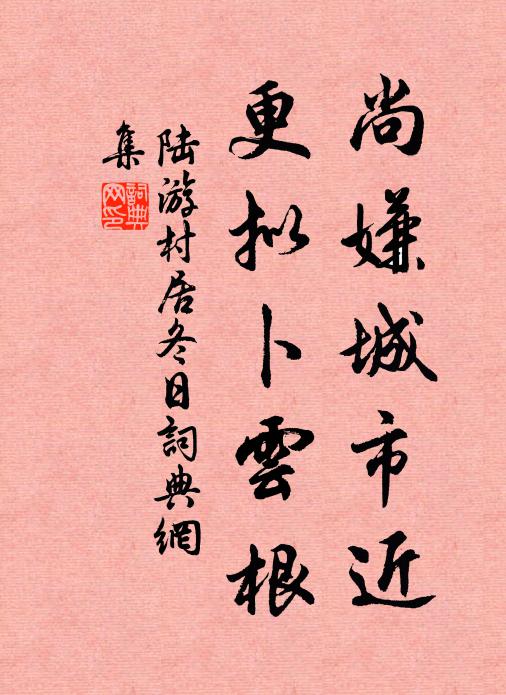 尚嫌城市近
更拟卜雲根
陆游村居冬日詞典網
集
詞典
网印